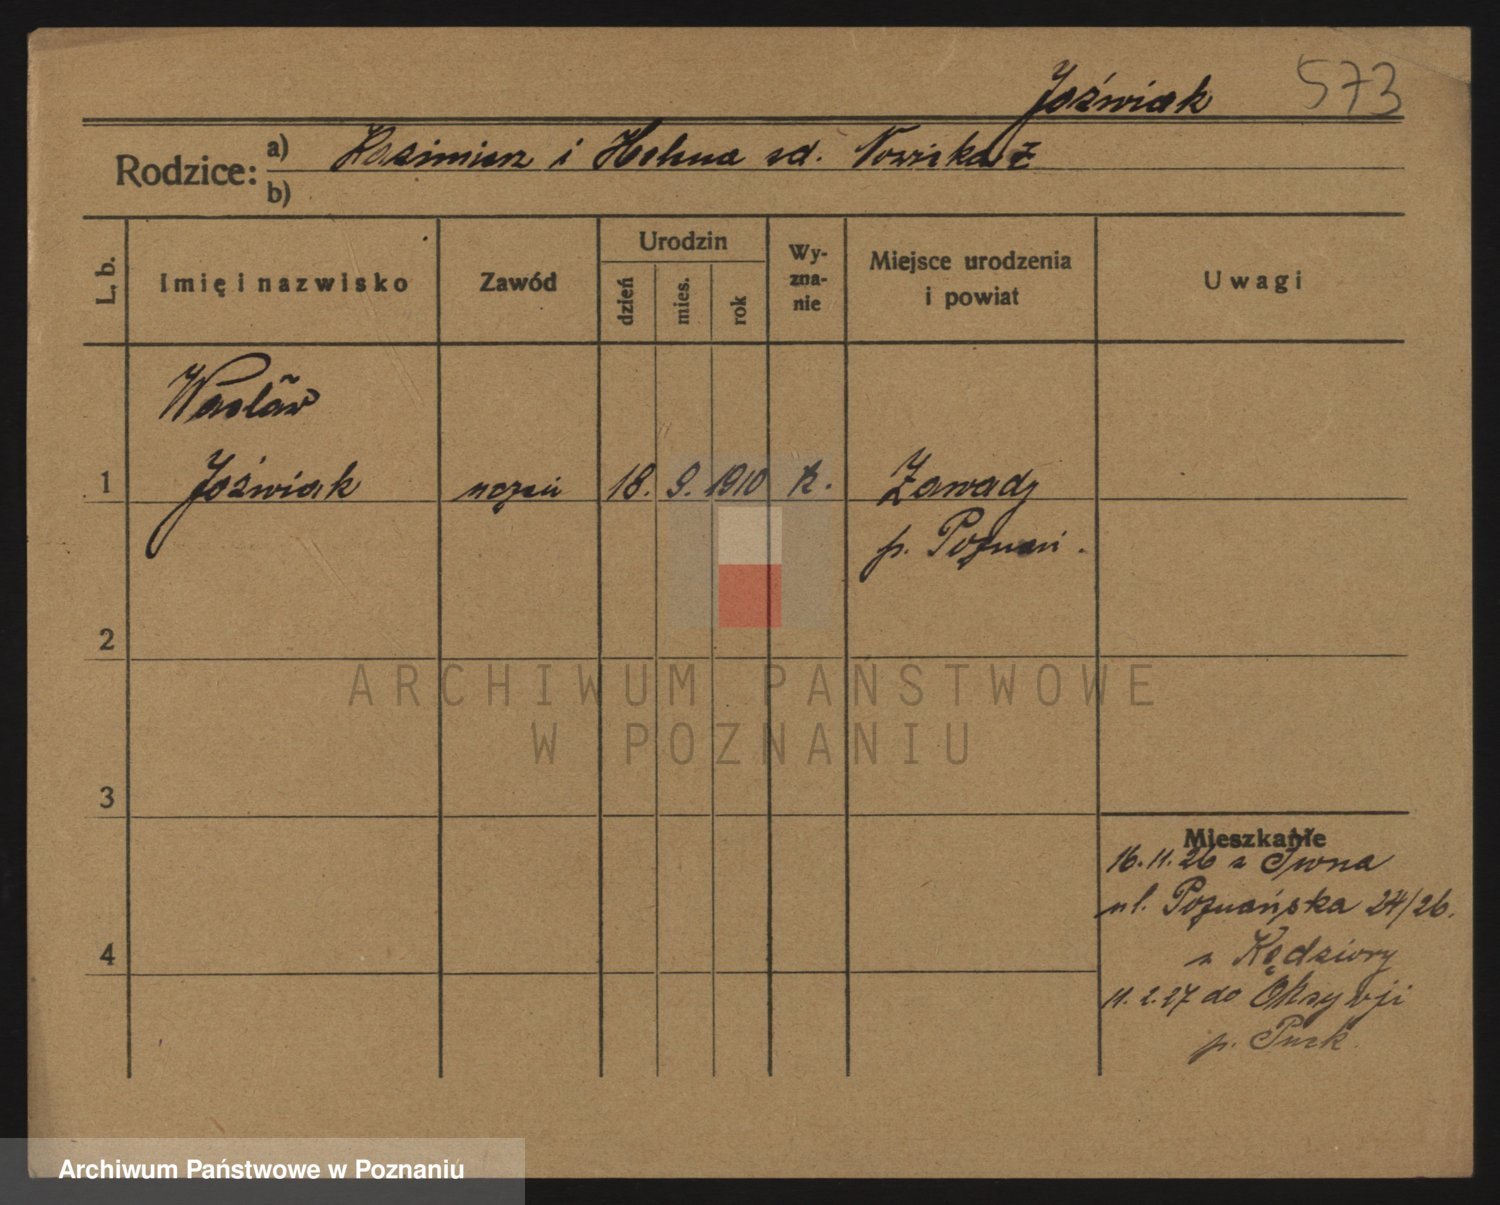 Jóźwiak 573
Rodzice: a) Kazimierz i Helena zd.
b)
L. b.
Imię i nazwisko
Zawód
Urodzin
dzień
mies.
rok
Wy-
zna-
nie
Miejsce urodzenia
i powiat
Uwagi
Wacław
1 Jóźwiak uczeń 18. 9. 1910 k. Zawady
p. Poznań.
2
3
4
Mieszkanie
16.11.26 z Iwna
ul. Poznańska 24/26.
z Kędziory
11.2.27 do Oksywji
p. Puck.
ARCHIWUM PAŃSTWOWE
W POZNANIU
Archiwum Państwowe w Poznaniu